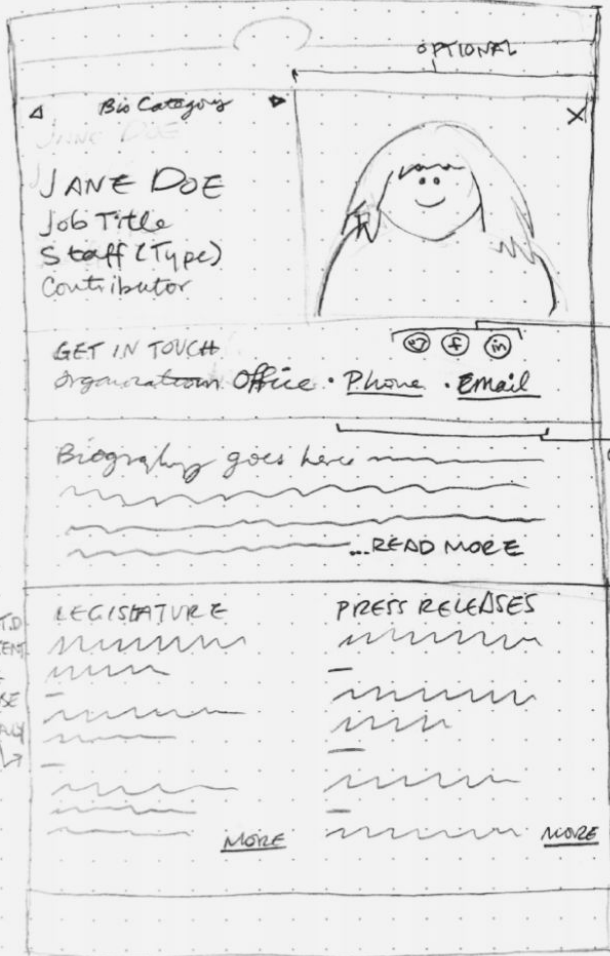 OPTIONAL
Bio Category
X
JANE DOE
JANE DOE
Job Title
Staff (Type)
Contributor
GET IN TOUCH
f in
Organization Office · Phone · Email
Biography goes here
...READ MORE
LEGISLATURE PRESS RELEASES
MORE MORE